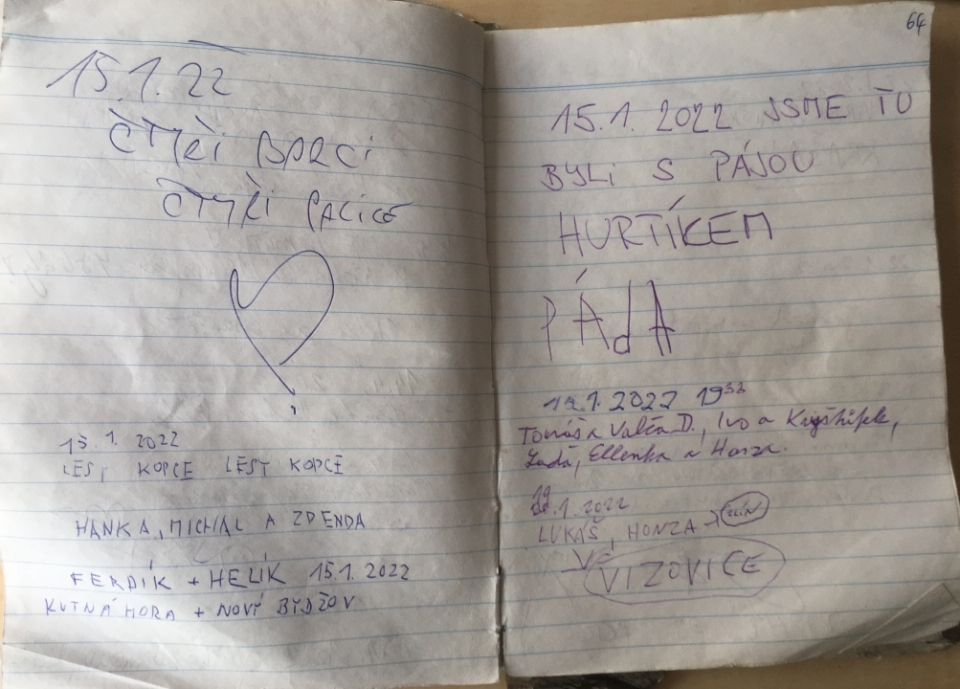 15.1.22
ČTYŘI BORCI
ČTYŘI PALICE
15.1.2022
LES, KOPCE LEST KOPCE
HANKA, MICHAL A ZDENDA
FERDÍK + HELÍK 15.1.2022
KUTNÁ HORA + NOVÝ BYDŽOV
64
15.1.2022 JSME TU
BYLI S PÁJOU
HURTÍKEM
PÁdA
.1.2022 19
Tomáš a Valča D., Ivo a
Lada, Ellenka a Honza.
.1.2022
LUKÁŠ, HONZA → ZLÍN
VIZOVICE